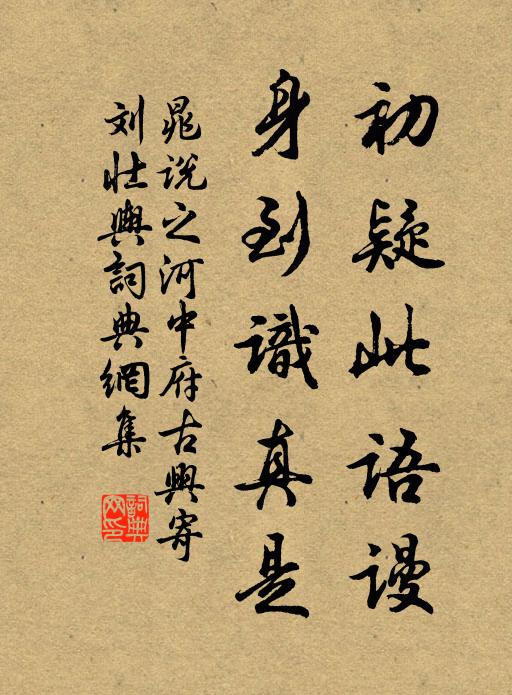 初疑此语谩
身到識真是
晁说之河中府古興寄
刘壮輿詞典網集
詞典網印